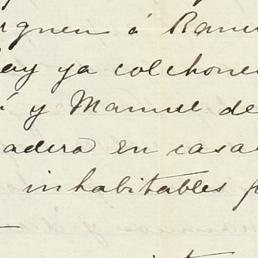 á Ramó
ay ya colchone
y Manuel de
adera en casa
inhabitables p